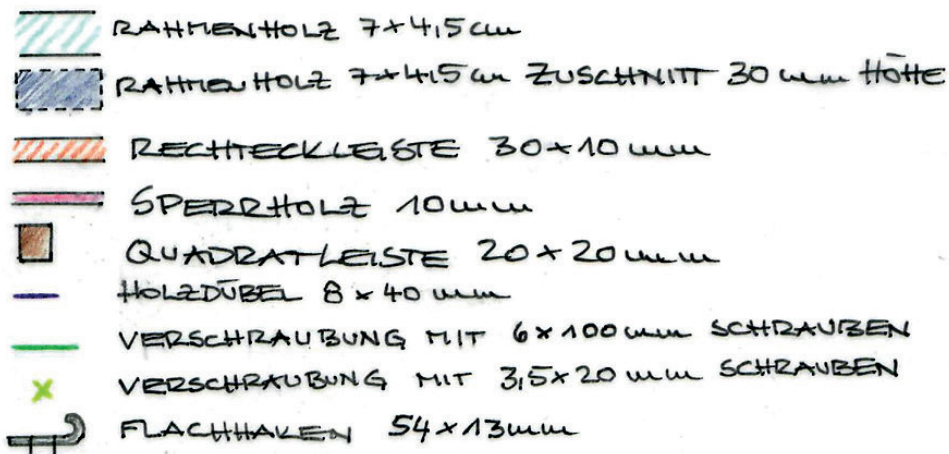 RAHMENHOLZ 7x4,5 cm
RAHMENHOLZ 7x4,5 cm ZUSCHNITT 30 mm HÖHE
RECHTECKLEISTE 30x10 mm
SPERRHOLZ 10 mm
QUADRATLEISTE 20x20 mm
HOLZDÜBEL 8x40 mm
VERSCHRAUBUNG MIT 6x100 mm SCHRAUBEN
VERSCHRAUBUNG MIT 3,5x20 mm SCHRAUBEN
FLACHHAKEN 54x13 mm